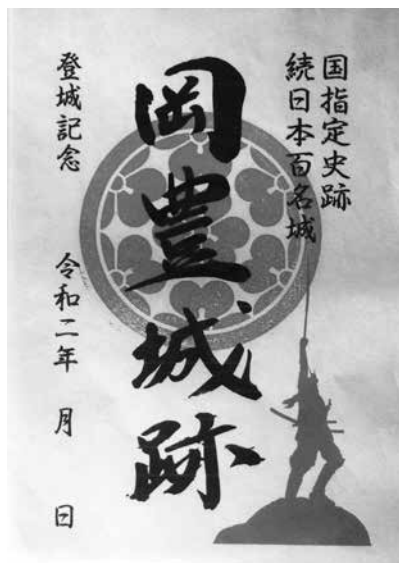 国指定史跡
続日本百名城
岡豊城跡
登城記念
令和二年　月　日